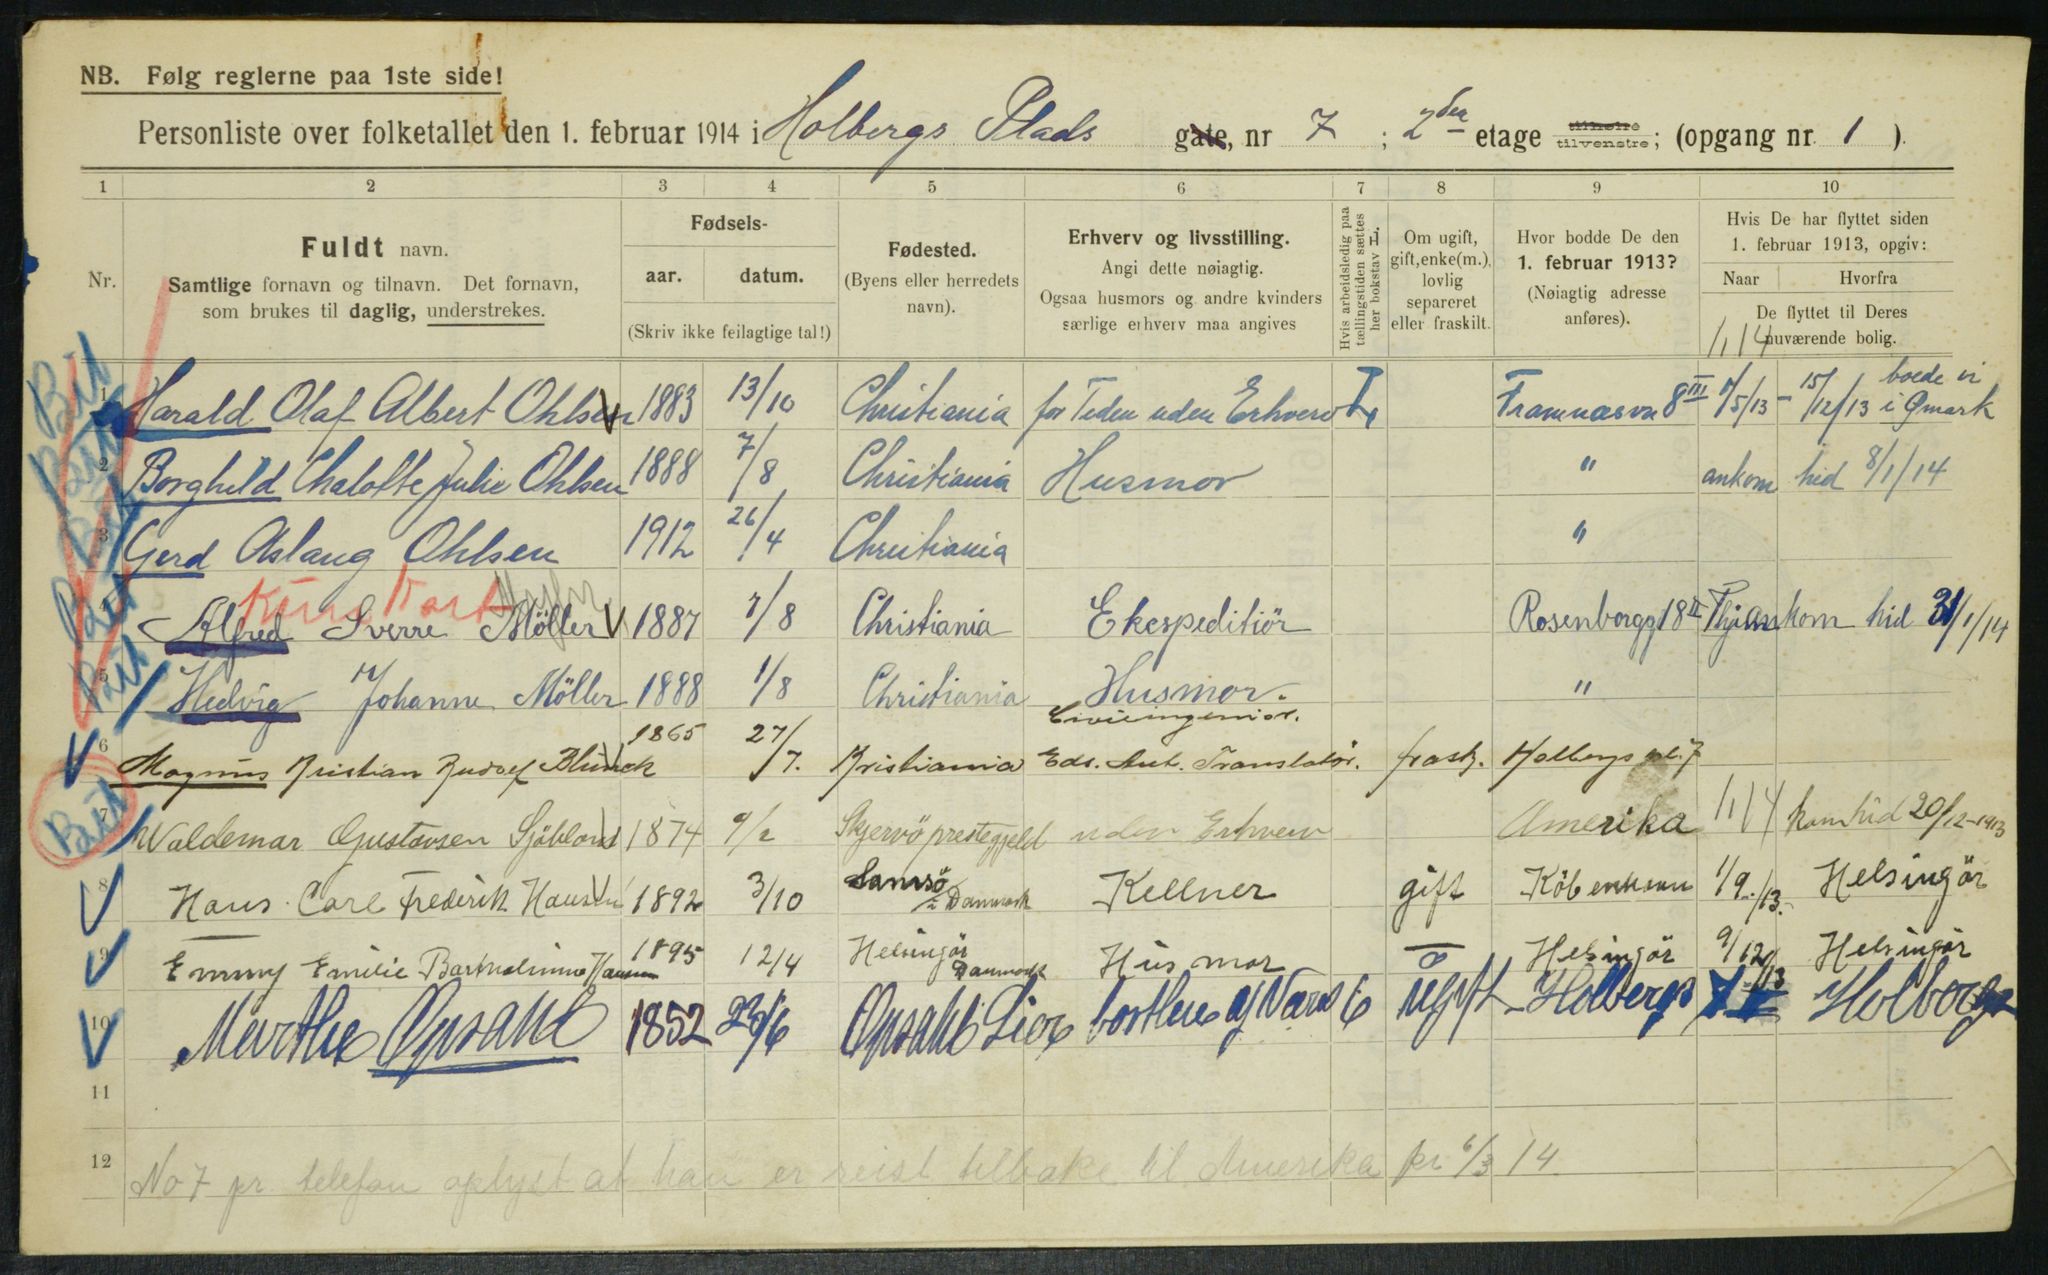 NB. Følg reglerne paa 1ste side!
Personliste over folketallet den 1. februar 1914 i Holbergs Plads gate, nr 7 ; 2den etage tilhøire tilvenstre; (opgang nr. 1 ).
1 2 3 4 5 6 7 8 9 10
Nr.
Fuldt navn.
Samtlige fornavn og tilnavn. Det fornavn,
som brukes til daglig, understrekes.
Fødsels-
aar. datum.
(Skriv ikke feilagtige tal!)
Fødested.
(Byens eller herredets
navn).
Erhverv og livsstilling.
Angi dette nøiagtig.
Ogsaa husmors og andre kvinders
særlige erhverv maa angives
Hvis arbeidsledig paa
tællingstiden sættes
her bokstav L.
Om ugift,
gift, enke(m.),
lovlig
separeret
eller fraskilt.
Hvor bodde De den
1. februar 1913?
(Nøiagtig adresse
anføres).
Hvis De har flyttet siden
1. februar 1913, opgiv:
Naar Hvorfra
De flyttet til Deres
nuværende bolig.
1/1 14
1 Harald Olaf Albert Ohlsen 1883 13/10 Christiania for Tiden uden Erhverv Framnæsvn 8 III /5/13 – 15/12/13 boede vi i Ømark
2 Borghild Chalotte Julie Ohlsen 1888 7/8 Christiania Husmor " ankom hid 8/1/14
3 Gerd Aslaug Ohlsen 1912 26/4 Christiania "
4 Alfred Sverre Möller 1887 7/8 Christiania Ekspeditiör Rosenborgg 18 II ankom hid 31/1/14
5 Hedvig Johanne Möller 1888 1/8 Christiania Husmor. "
6 Magnus Kristian Rudolf Blunck 1865 27/7. Kristiania Civilingeniör. Eds. Aut. Translatör. frask. Holbergs pl. 7
7 Waldemar Gustavsen Sjöblond 1874 9/2 Skjervö prestegjeld uden Erhverv Amerika 1/1 14 kom hid 20/12-1913
8 Hans Carl Frederik Hansen 1892 3/10 Samsö Danmark Kellner gift Köbenhavn 1/9./13. Helsingör
9 Emmy Emilie Bartholinne Hansen 1895 12/4 Helsingör Danmark Husmor Helsingör 9/12/13 Helsingör
10 Marthe Opsahl 1852 Opsahl Lier ugift Holbergs Holbergs
11
12 No 7 pr. telefon oplyst at han er reist tilbake til Amerika pr 6/3 14.